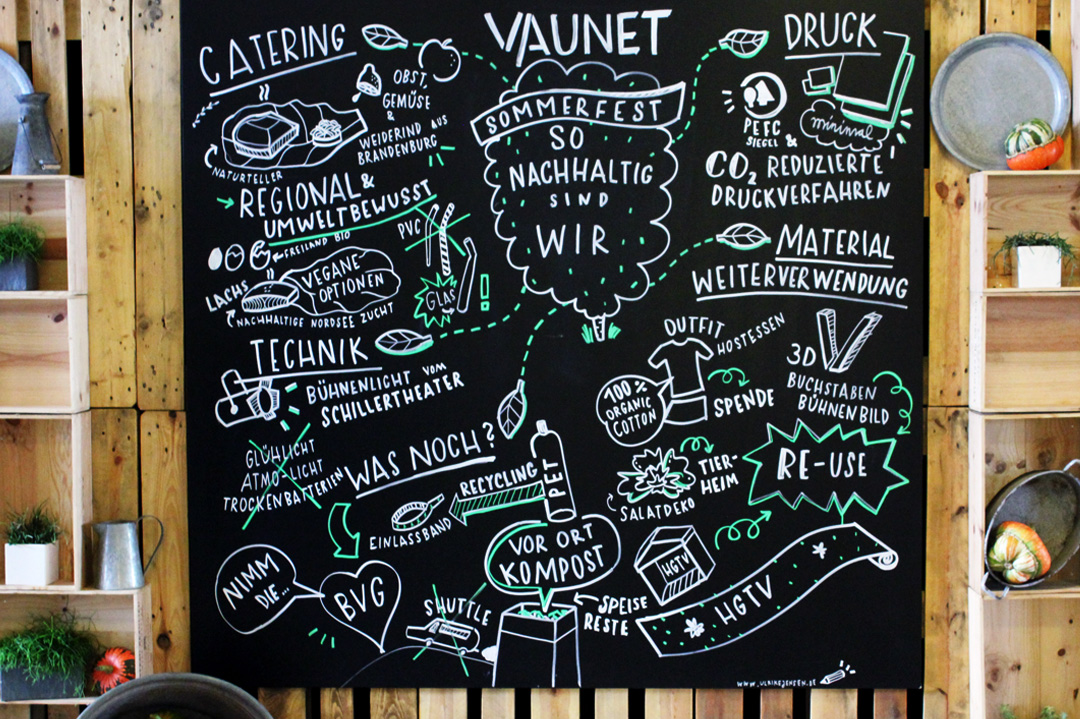 VAUNET
SOMMERFEST
SO
NACHHALTIG
SIND
WIR
CATERING
OBST,
GEMÜSE
&
WEIDERIND AUS
BRANDENBURG
NATURTELLER
REGIONAL &
UMWELTBEWUSST
FREILAND BIO
PVC
GLAS
!
VEGANE
OPTIONEN
LACHS
NACHHALTIGE NORDSEE ZUCHT
TECHNIK
BÜHNENLICHT VOM
SCHILLERTHEATER
GLÜHLICHT
ATMO-LICHT
TROCKENBATTERIEN
WAS NOCH?
RECYCLING
PET
EINLASSBAND
NIMM
DIE...
BVG
SHUTTLE
VOR ORT
KOMPOST
SPEISE
RESTE
DRUCK
PEFC
SIEGEL
&
minimal
CO2 REDUZIERTE
DRUCKVERFAHREN
MATERIAL
WEITERVERWENDUNG
OUTFIT
HOSTESSEN
100%
ORGANIC
COTTON
SPENDE
3D V
BUCHSTABEN
BÜHNENBILD
RE-USE
SALATDEKO
TIER-
HEIM
HGTV
HGTV
WWW.ULRIKEJENSEN.DE